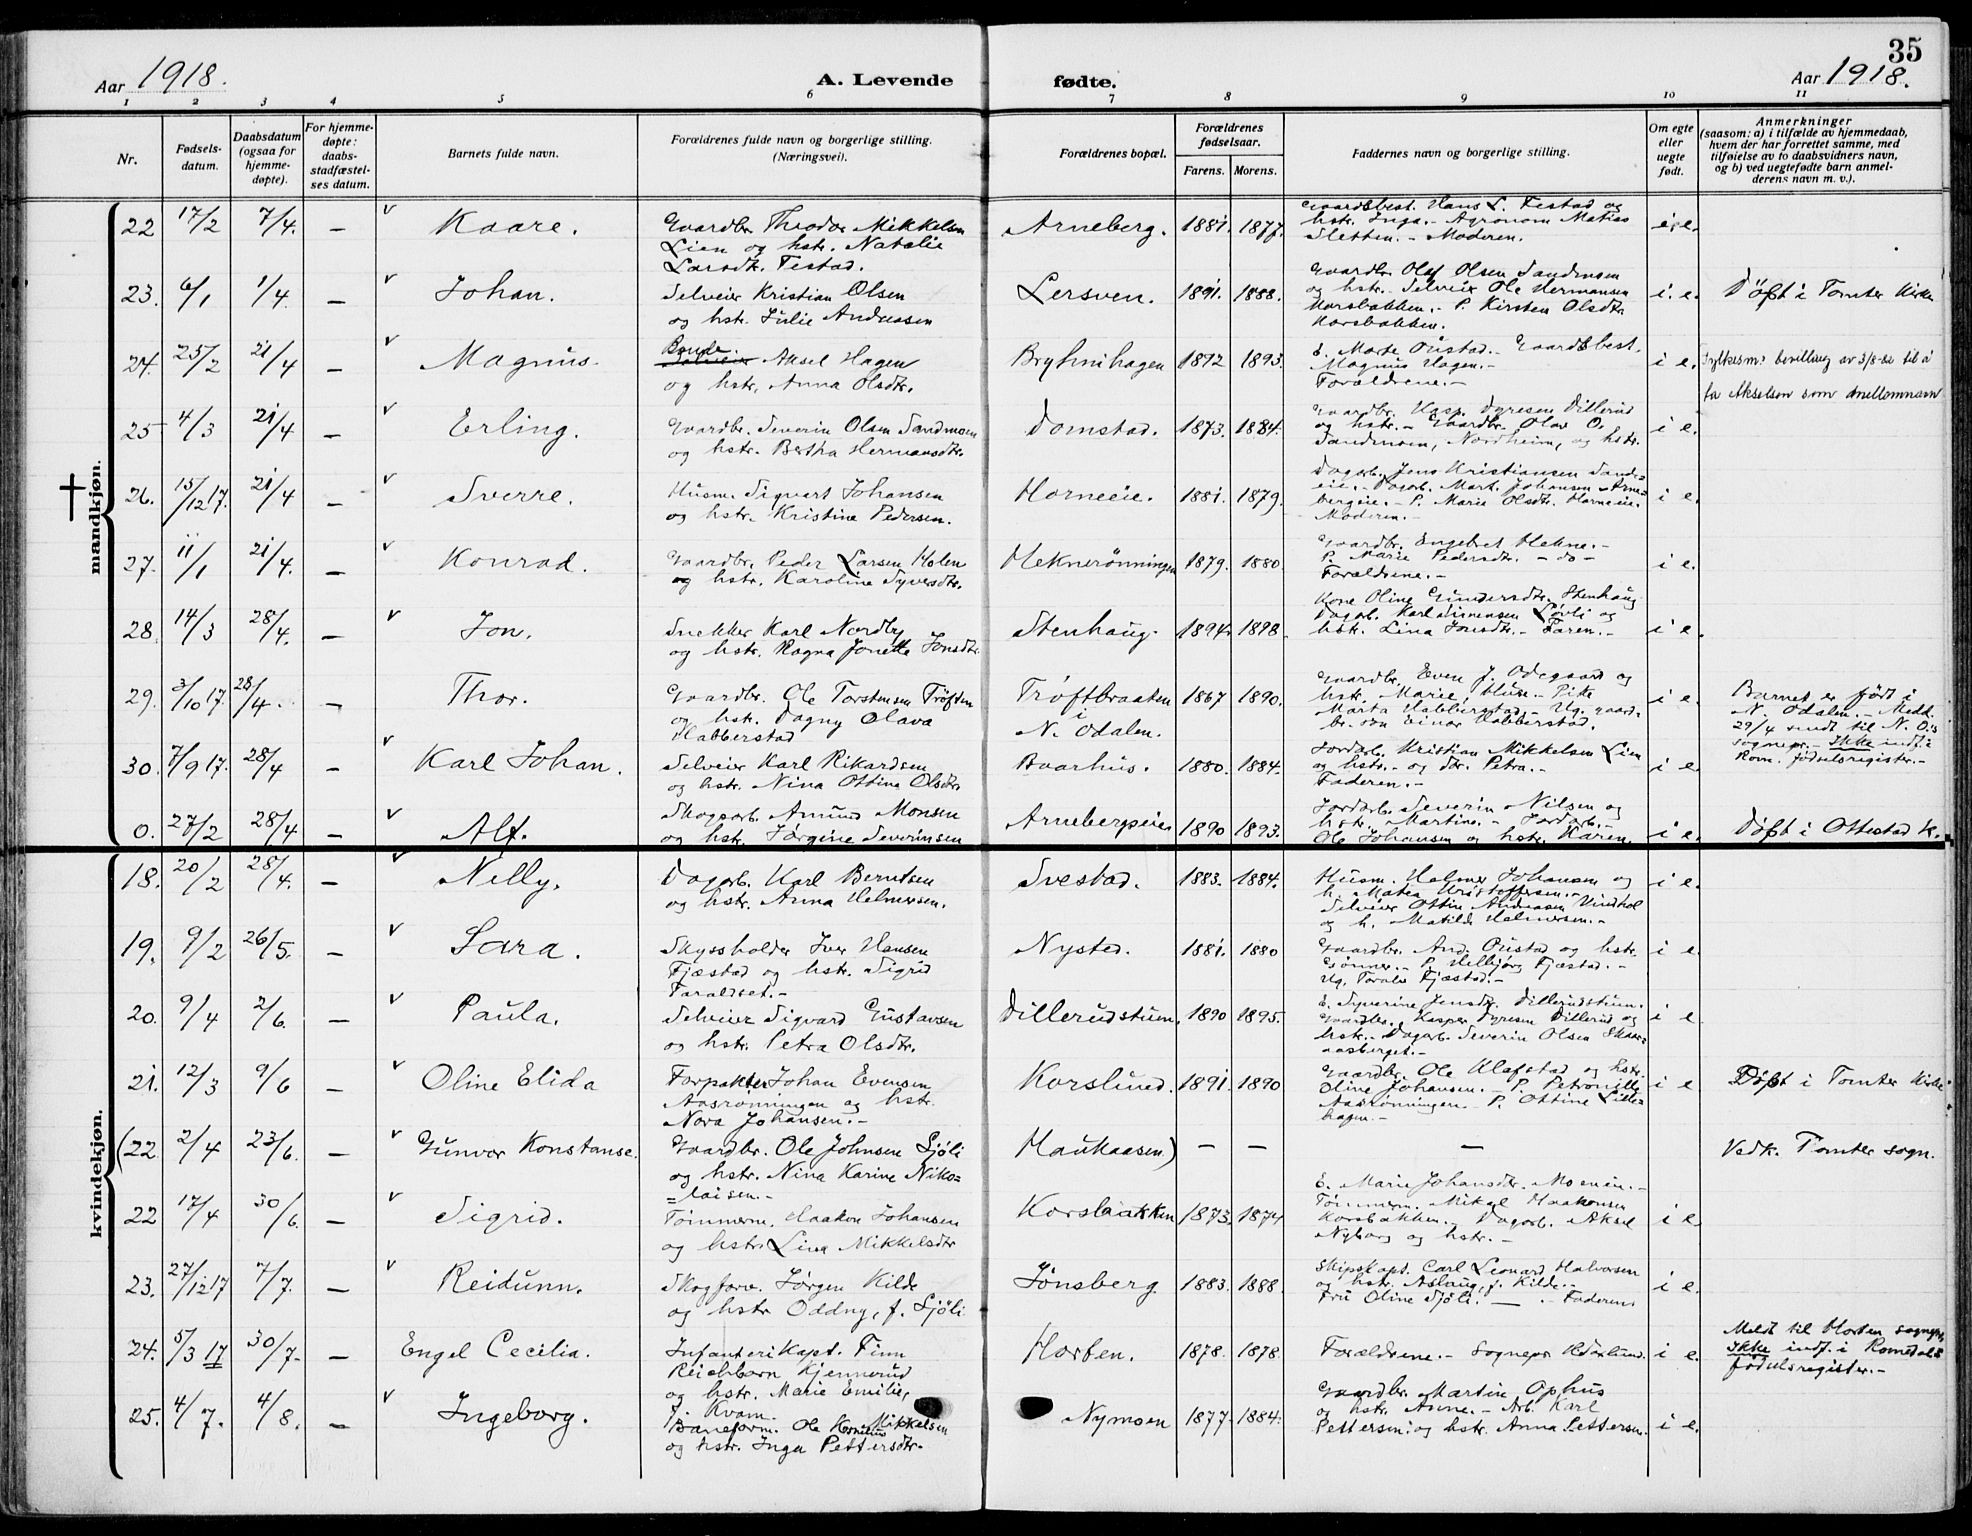 35
Aar 1918.
A. Levende
fødte.
Aar 1918.
1 2 3 4 5 6 7 8 9 10 11
Nr.
Fødsels-
datum.
Daabsdatum
(ogsaa for
hjemme-
døpte).
For hjemme-
døpte:
daabs-
stadfæstel-
ses datum.
Barnets fulde navn.
Forældrenes fulde navn og borgerlige stilling.
(Næringsvei).
Forældrenes bopæl.
Forældrenes
fødselsaar.
Farens. Morens.
Faddernes navn og borgerlige stilling.
Om egte
eller
uegte
født.
Anmerkninger
(saasom: a) i tilfælde av hjemmedaab,
hvem der har forrettet samme, med
tilføielse av to daabsvidners navn,
og b) ved uegtefødte barn anmel-
derens navn m. v.).
mandkjøn.
22 17/2 7/4. – Kaare.
Gaardbr. Theodor Mikkelsen
Lien og hstr. Natalie
Larsdtr. Festad.
Arneberg. 1881. 1877.
Gaardsbest. Hans L. Festad og
hstr. Inga. – Agronom Matias
Sletten. – Moderen.
i e.
23. 6/1 1/4. – Johan.
Selveier Kristian Olsen
og hstr. Julie Andreasen
Lersven. 1891. 1888.
Gaardbr. Olaf Olsen Sandmoen
og hstr. – Selveier Ole Hermansen
Korsbakken. – P. Kirsten Olsdtr.
Korsbakken.
i. e. Døbt i Tomter Kirke
24. 25/2 21/4 – Magnus.
Bonde.
Selveier Aksel Hagen
og hstr. Anna Olsdtr.
Bryhnihagen 1892 1893.
E. Marte Oustad. – Gaardsbest.
Magnus Hagen. –
Forældrene. –
i e. Fylkesm: bevilling av 3/8-82 til å
fa Akselsen som mellomnavn
25 4/3 21/4 – Erling.
Gaardbr. Severin Olsen Sandmoen
og hstr. Bertha Hermansdtr.
Domstad. 1873. 1884.
Gaardbr. Kasp. Dyresen Dillerud
og hstr. – Gaardbr. Olav O.
Sandmoen, Nordheim, og hstr.
i e.
26. 15/12 17. 21/4 – Sverre.
Husm. Sigvart Johansen
og hstr. Kristine Pedersen.
Horneeie. 1881. 1879.
Dagarb. Jens Kristiansen Sande=
eie. – Dagarb. Mart. Johansen Arne=
bergeie. – P. Marie Olsdtr. Horneeie.
Moderen. –
i e.
27. 11/1 21/4. – Konrad.
Gaardbr. Peder Larsen Holen
og hstr. Karoline Syversdtr.
Heknerønningen 1879. 1880
Gaardbr. Engebret Hekne. –
P. Marie Pedersdtr. – do –
Forældrene. –
i e.
28. 14/3 28/4. – Jon.
Snekker Karl Nordby
og hstr. Ragna Jonette Jonsdtr.
Stenhaug. 1894. 1898.
Kone Oline Gundersdtr. Stenhaug
Dagarb. Karl Simensen Løvli og
hstr. Lina Jonsdtr. – Faren. –
i e.
29. 3/10 17. 28/4. – Thor.
Gaardbr. Ole Torstensen Trøften
og hstr. Dagny Olava
Habberstad
Trøftbraaten
i
N. Odalen. 1867 1890.
Gaardbr. Even J. Odegaard og
hstr. Marie, Huse. – Pike
Marta Habberstad. – Ug. gaard-
br. søn Einar Habberstad.
i e. Barnet er født i
N. Odalen. – Medd.
29/4 sendt til N. O:s
sognepr. – Ikke indf. i
Rom. fødselsregister. –
30. 7/9 17. 28/4 – Karl Johan.
Selveier Karl Rikardsen
og hstr. Nina Ottina Olsdtr.
Baarhus. 1880. 1884.
Jordarb. Kristian Mikkelsen Lien
og hstr. – og dtr. Petra. –
Faderen. –
i e.
0. 27/2 28/4 – Alf.
Skogsarb. Amund Monsen
og hstr. Jørgine Severinsen
Arnebergseie 1890 1893.
Jordarb. Severin Nilsen og
hstr. Martine. – Jordarb.
Ole Johansen og hstr. Karen.
i e. Døbt i Ottestad k.
kvindekjøn.
18. 20/2 28/4. – Nelly.
Dagarb. Karl Berntsen
og hstr. Anna Helmersen.
Svestad. 1883. 1884.
Husm. Halmer Johansen og
h. Matea Kristoffersen. –
Selveier Ottin Andreasen Vindhol
og h. Matilde Halmersen. –
i e.
19. 9/2 26/5. – Sara.
Skyssholder Iver Hansen
Fjæstad og hstr. Sigrid
Faraldset. –
Nysted. 1881. 1880
Gaardbr. And. Oustad og hstr.
Gønner. – P. Helbjørg Fjæstad. –
Ug. Toralv Fjæstad. –
i e
20. 9/4 2/6. – Paula.
Selveier Sigvard Gustavsen
og hstr. Petra Olsdtr.
Dillerudstuen. 1890 1895.
E. Syverine Jensdtr. Dillerudstuen.
Gaardbr. Kasper Dyresen Dillerud og
hstr. – Dagarb. Severin Olsen Skaar=
aasberget. –
i e
21. 12/3 9/6 – Oline Elida
Forpakter Johan Evensen
Aasrønningen og hstr.
Nora Johansen. –
Korslund. 1891. 1890
Gaardbr. Ole Ulafstad og hstr.
Oline Johansen. – P. Petronille
Aasrønningen. – P. Ottine Lille=
hagen. –
i e Døbt i Tomter Kirke
(22 2/4 23/6. – Gunvor Konstanse.
Gaardbr. Ole Johnsen Sjøli
og hstr. Nina Karine Niko=
=laisen. –
Haukaasen) – – –
Vedk. Tomter sogn.
22 17/4 30/6. – Sigrid.
Tømmerm. Haakon Johansen
og hstr. Lina Mikkelsdtr
Korsbakken 1873. 1874
E. Marie Johansdtr. Moenin. –
Tømmerm. Mikal Haakonsen
Korsbakken. – Dagarb. Aksel
Nyborg og hstr. –
i e
23. 27/12 17 7/7. – Reidunn.
Skogforv. Jørgen Kilde
og hstr Oddny, f. Sjøli
Jønsberg 1883. 1888.
Skipskapt. Carl Leonard Halvorsen
og hstr. Aslaug, f. Kilde. –
Fru Oline Sjøli. – – Faderen.
i e.
24. 5/3 17 30/7. – Engel Cecilia.
Infanterikapt. Finn
Reichborn Kjennerud
og hstr. Marie Emilie,
f. Kvam.
Horten. 1878. 1878
Forældrene. – Sognepr. Alderlund.
i e. Meldt til Horten sognepr.
Ikke indf. i Romedals
fødselsregister. –
25. 4/7. 4/8. – Ingeborg.
Baneform. Ole Kornelius Mikkelsen
og hstr. Inga Pettersdtr.
Nymoen 1877. 1884.
Gaardbr. Martin Ophus
og hstr. Anne. – Arb. Karl
Pettersen og hstr. Anna Pettersen.
i e.